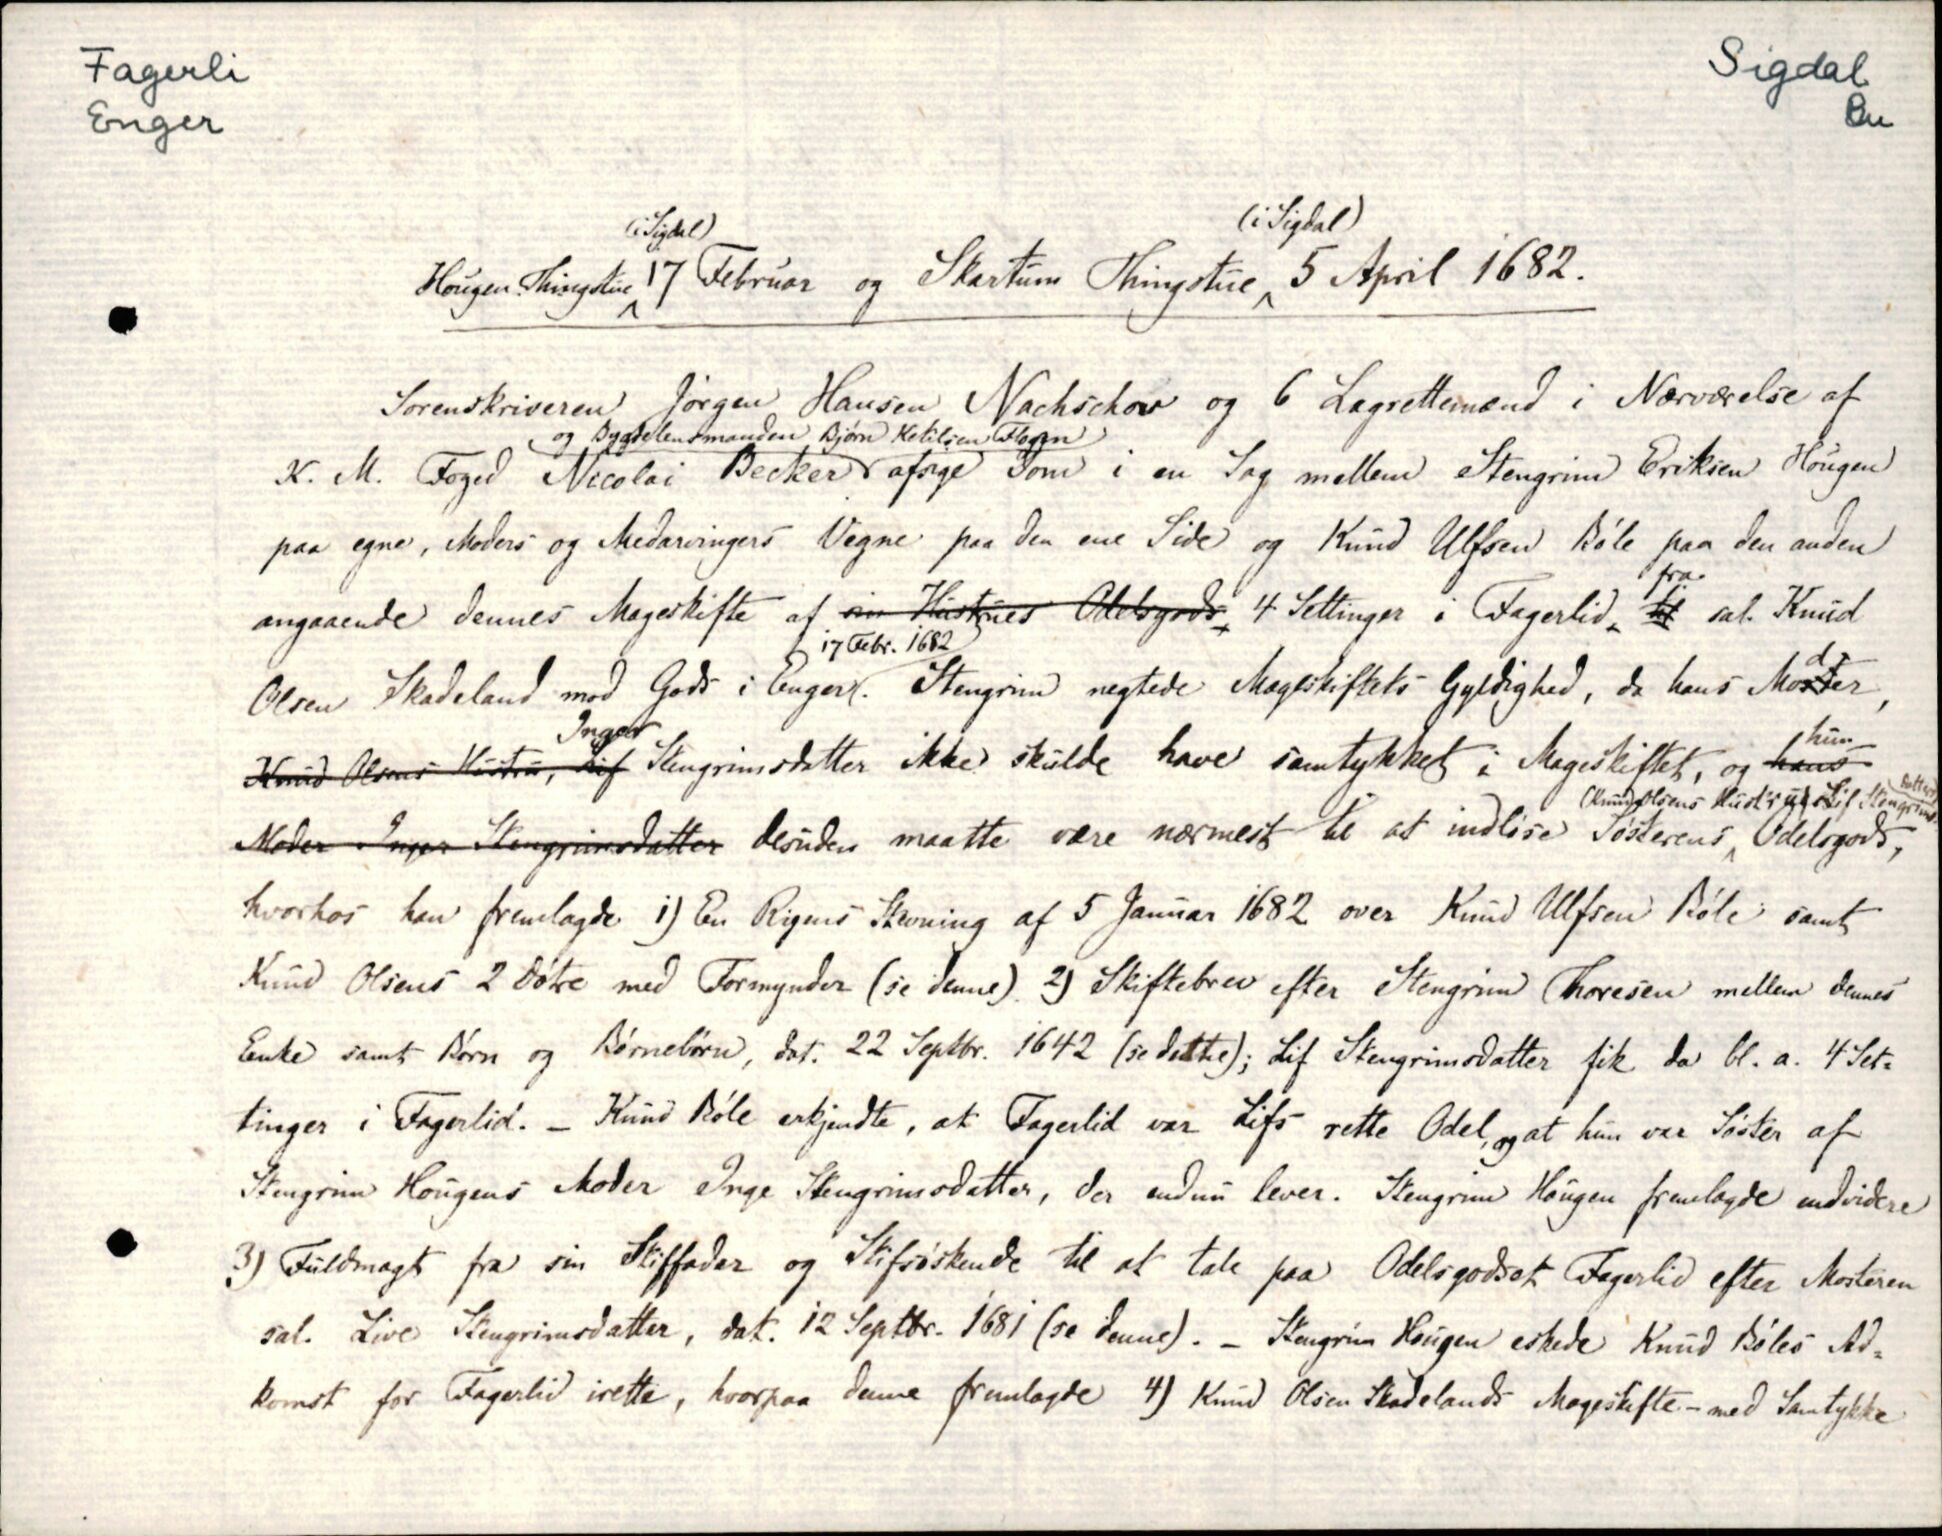 Fagerli
Enger
Sigdal
Bu
(i Sigdal) (i Sigdal)
Hougen Thingstue 17 Februar og Skartum Thingstue 5 April 1682.
Sorenskriveren Jörgen Hansen Nachschow og 6 Lagrettemænd i Nærværelse af
og Bygdelensmanden Björn Ketilsen Floren
K. M. Foged Nicolai Becker afsige Dom i en Sag mellem Stengrim Eriksen Hougen
paa egne, Moders og Medarvingers Vegne paa den ene Side og Knud Ulfsen Böle paa den anden
fra
angaaende dennes Mageskifte af sin Hustrues Odelsgods 4 Settinger i Fagerlid, til sal. Knud
17 Febr. 1682
Olsen Skadeland mod Gods i Enger. Stengrim negtede Mageskiftets Gyldighed, da hans Moder,
Inger
Knud Olsens Hustru, Lif Stengrimsdatter ikke skulde have samtykket i Mageskiftet, og hans
hun
(Knud Olsens Hustrues Lif Stengrimsdatters)
Moder Inger Stengrimsdatter desuden maatte være nærmest til at indlöse Sösterens Odelsgods,
hvorhos han fremlagde 1) En Rigens Stevning af 5 Januar 1682 over Knud Ulfsen Böle samt
Knud Olsens 2 Dötre med Formynder (se denne). 2) Skiftebrev efter Stengrim Thoresen mellem dennes
Enke samt Börn og Börnebörn, dat. 22 Septbr. 1642 (se dette); Lif Stengrimsdatter fik da bl. a. 4 Set=
tinger i Fagerlid. – Knud Böle erkjendte, at Fagerlid var Lifs rette Odel, og at hun var Söster af
Stengrim Hougens Moder Inge Stengrimsdatter, der endnu lever. Stengrim Hougen fremlagde endvidere
3) Fuldmagt fra sin Stiffader og Stifsöskende til at tale paa Odelsgodset Fagerlid efter Mosteren
sal. Live Stengrimsdatter, dat. 12 Septbr. 1681 (se denne). – Stengrim Hougen eskede Knud Böles Ad=
komst for Fagerlid irette, hvorpaa denne fremlagde 4) Knud Olsen Skadelands Mageskifte – med Samtykke